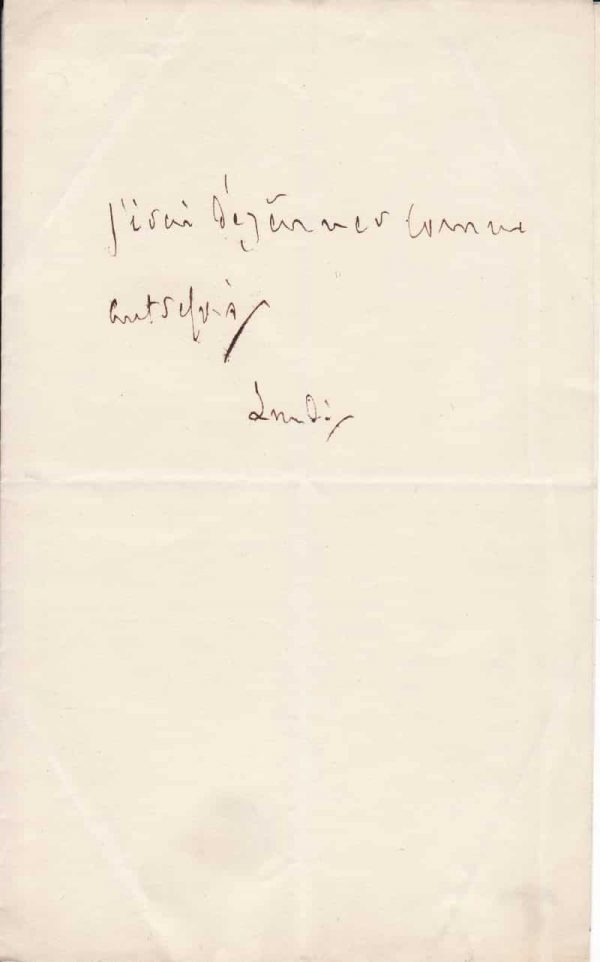 j'irai déjeûner comme
autrefois
Lundi